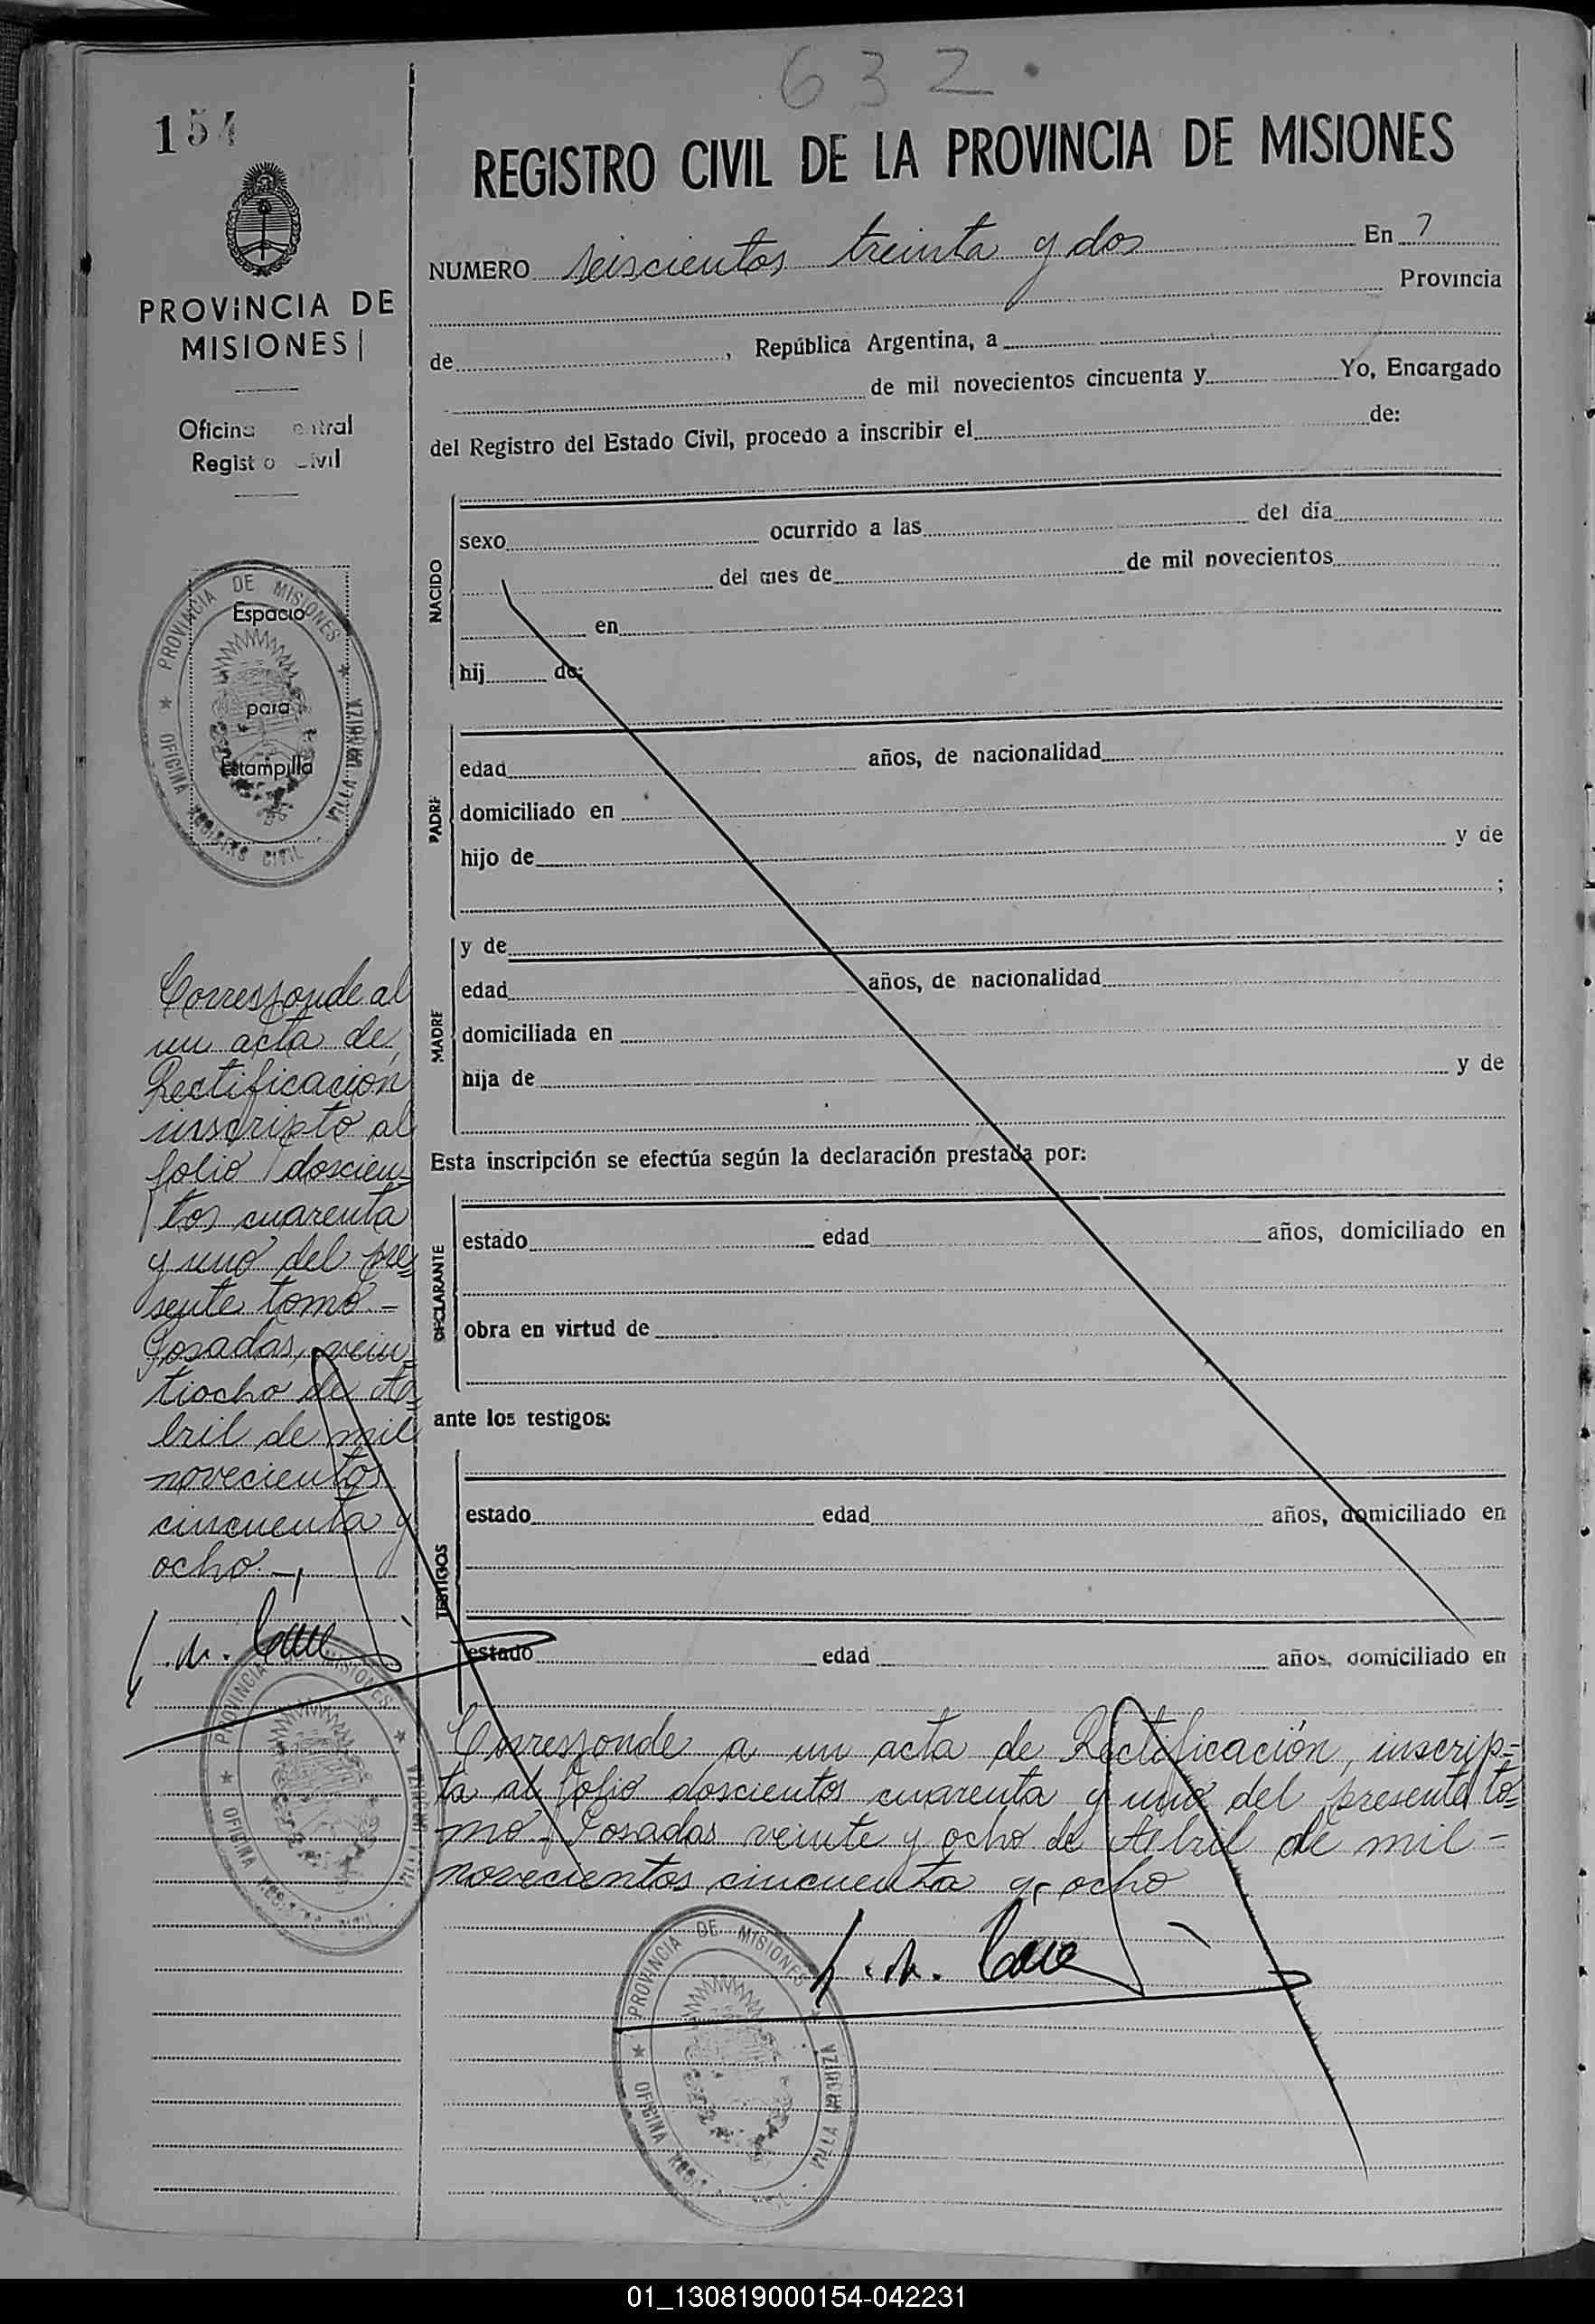 632.
154
REGISTRO CIVIL DE LA PROVINCIA DE MISIONES
NUMERO seiscientos treinta y dos En 7
Provincia
de , República Argentina, a
de mil novecientos cincuenta y Yo, Encargado
del Registro del Estado Civil, procedo a inscribir el de:
PROVINCIA DE
MISIONES
Oficina entral
Regist o ivil
PROVINCIA DE MISIONES
OFICINA REGISTRO CIVIL - VILLA URQUIZA
Espacio
para
Estampilla
NACIDO
sexo ocurrido a las del día
del mes de de mil novecientos
en
hij de:
PADRE
edad años, de nacionalidad
domiciliado en
hijo de y de
;
MADRE
y de
edad años, de nacionalidad
domiciliada en
hija de y de
Esta inscripción se efectúa según la declaración prestada por:
DECLARANTE
estado edad años, domiciliado en
obra en virtud de
ante los testigos:
TESTIGOS
estado edad años, domiciliado en
estado edad años, domiciliado en
Corresponde a un acta de Rectificación, inscrip=
ta al folio doscientos cuarenta y uno del presente to=
mo - Posadas veinte y ocho de Abril de mil -
novecientos cincuenta y ocho
PROVINCIA DE MISIONES
OFICINA - VILLA URQUIZA
Corresponde al
un acta de
Rectificación
inscripto al
folio doscien=
tos cuarenta
y uno del pre=
sente tomo -
Posadas, vein=
tiocho de A=
bril de mil
novecientos
cincuenta y
ocho.-
PROVINCIA MISIONES
OFICINA VILLA URQUIZA
01_130819000154-042231